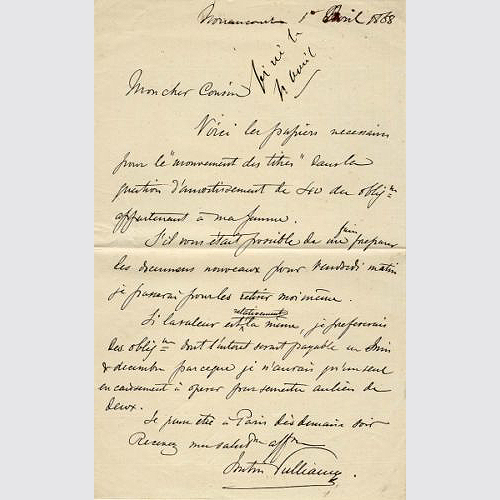 Nonancourt 1er Avril 1868
fini le
11 avril
Mon cher Cousin
Voici les papiers necessaires
pour le "mouvement des titres" dans la
question d'amortissement de des oblig.ns
appartenant à ma femme.
S'il vous était possible de me faire preparer
les documens nouveaux pour Vendredi matin
je passerai pour les retirer moi même.
Si la valeur est relativement la même, je prefererais
des oblig.ns dont l'interet serait payable en Juin
& décembre parceque je n'aurais qu'un seul
encaissement à operer par semestre au lieu de
deux.
Je puis être à Paris dès demain soir
Recevez mes salut.ons aff.
Vulliamy